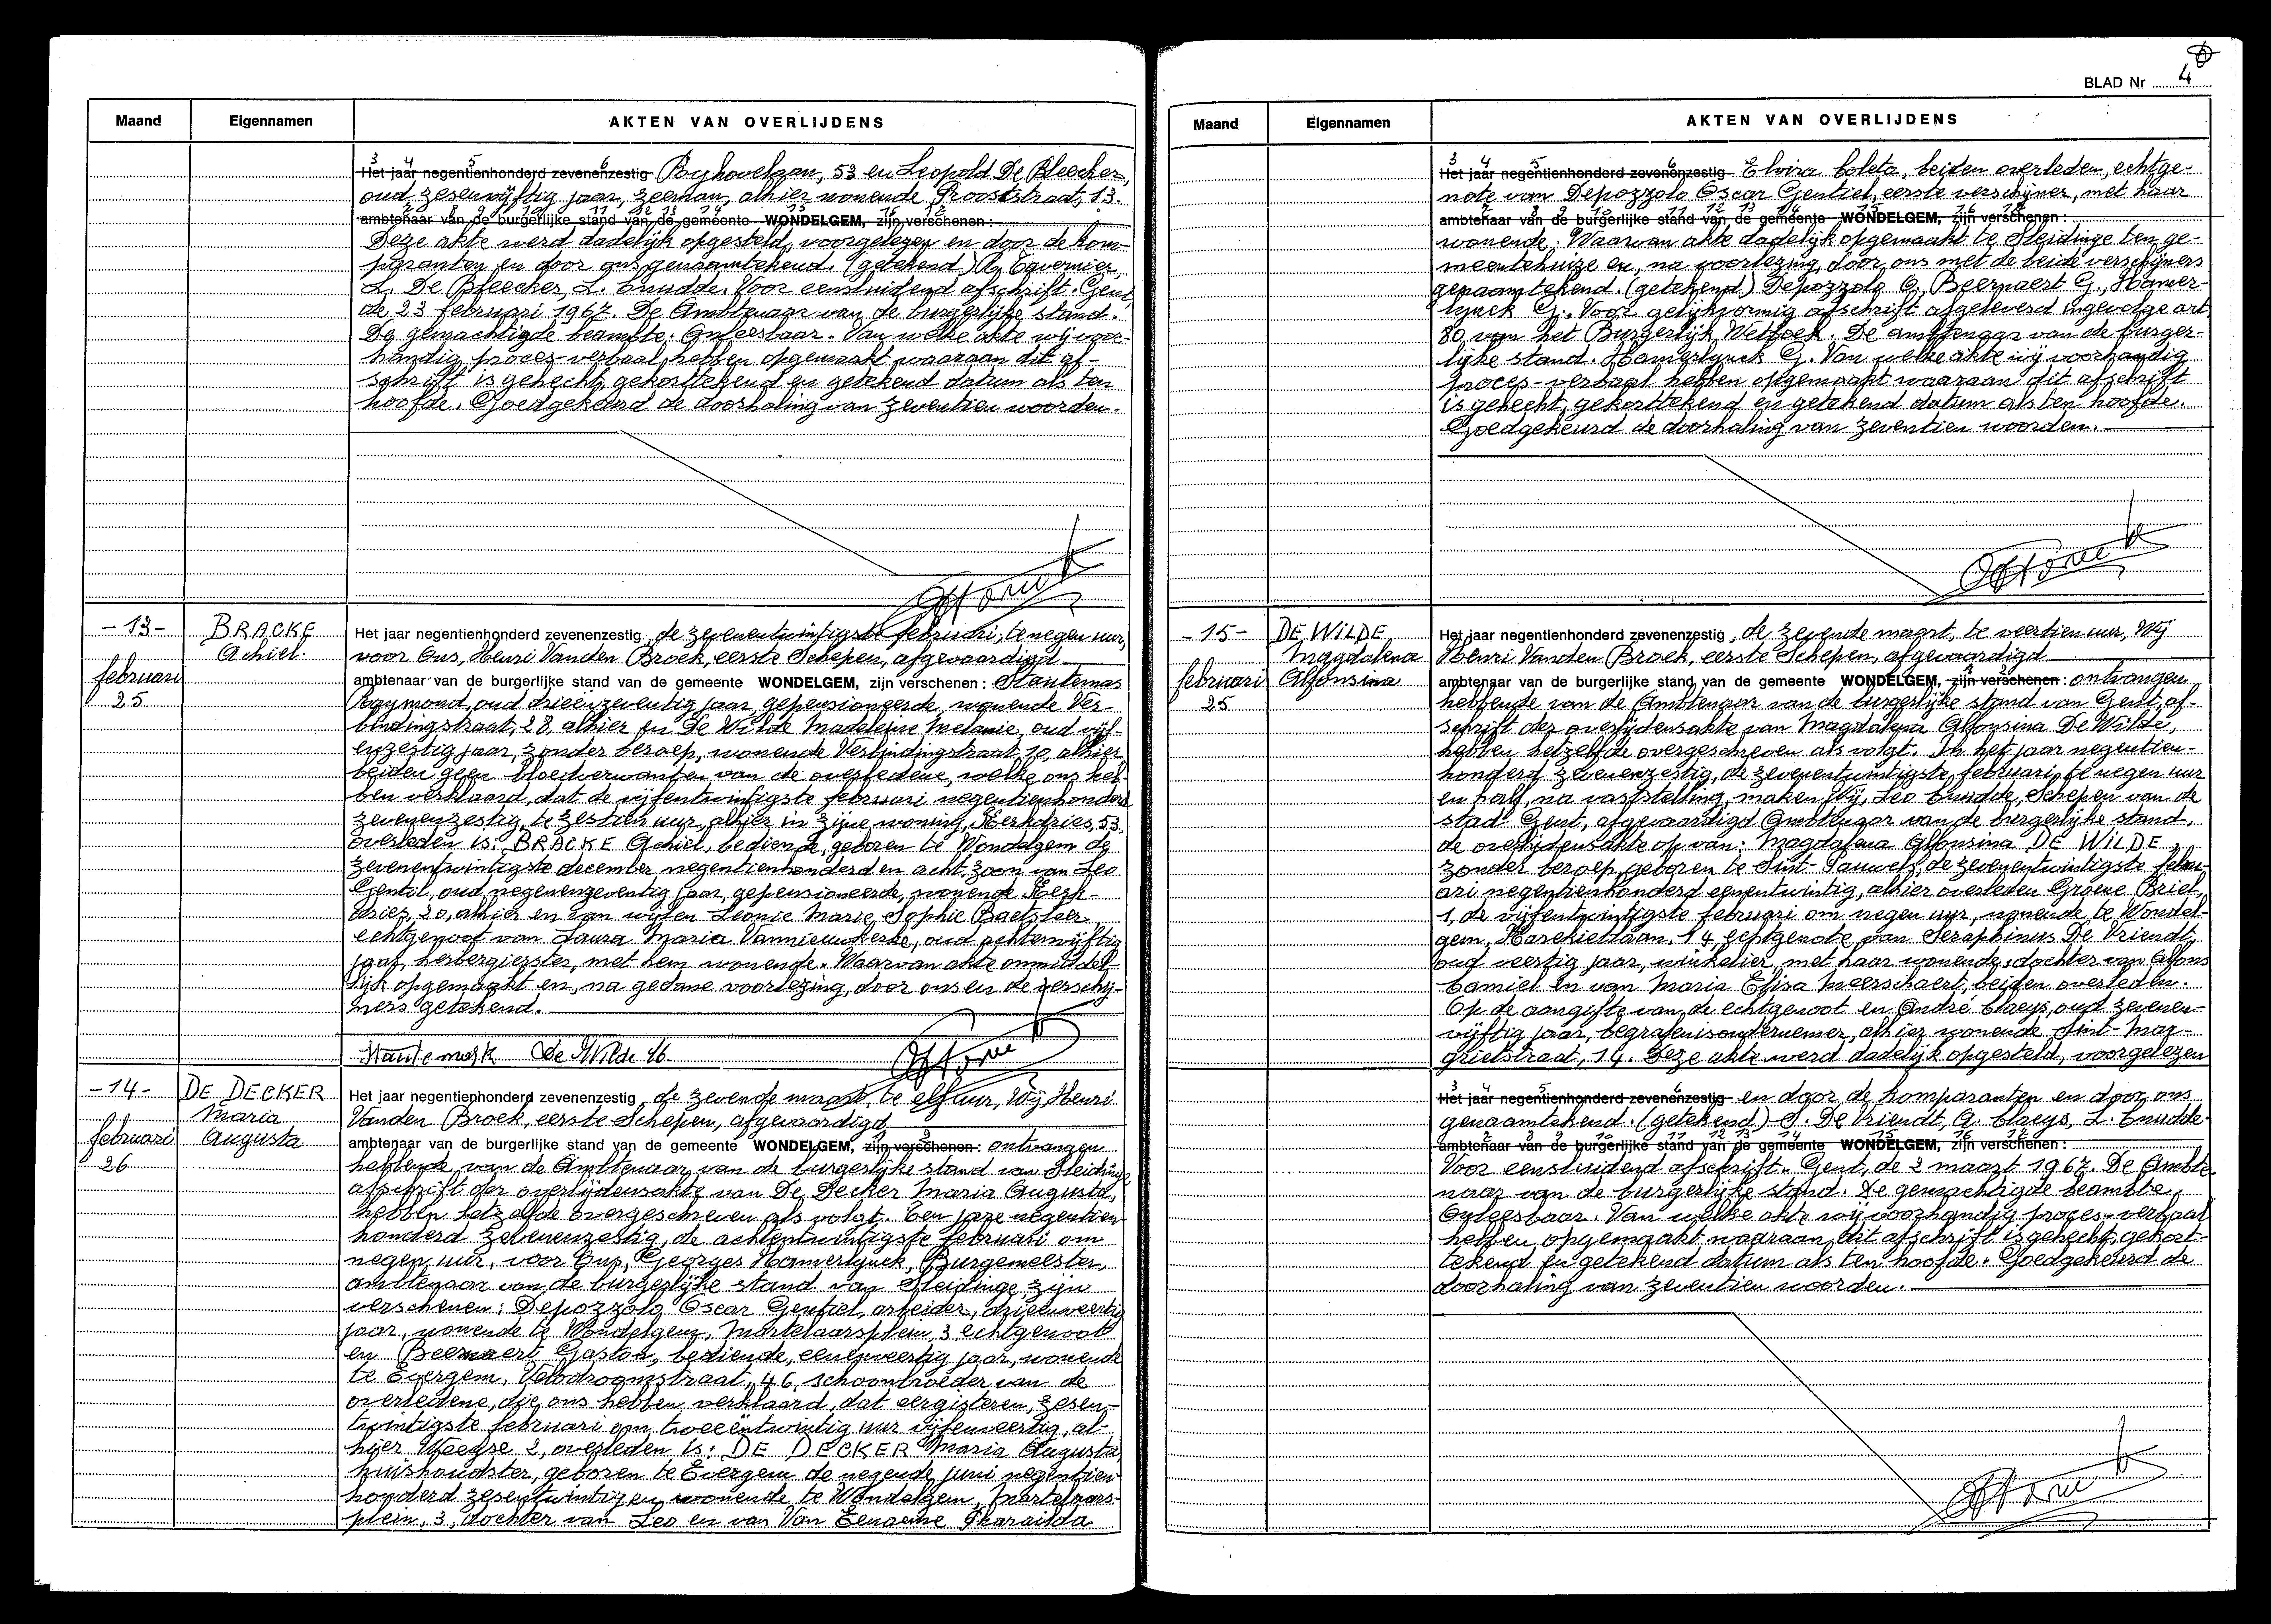 Maand Eigennamen AKTEN VAN OVERLIJDENS
3 4 5 6
Het jaar negentienhonderd zevenenzestig Byhovelaan, 53 en Leopold De Bleecker,
oud zesenvijftig jaar, zeeman, alhier wonende Prooststraat, 13.
ambtenaar van de burgerlijke stand van de gemeente WONDELGEM, zijn verschenen:
Deze akte werd dadelijk opgesteld, voorgelezen en door de kom-
paranten en door ons genaamtekend. (getekend) R. Tavernier,
L. De Bleecker, L. Cnudde. Voor eensluidend afschrift. Gent,
de 23 februari 1967. De Ambtenaar van de burgerlijke stand.
De gemachtigde beambte. Onleesbaar. Van welke akte wij voor-
handig proces-verbaal hebben opgemaakt waaraan dit af-
schrift is gehecht, gekorttekend en getekend datum als ten
hoofde. Goedgekeurd de doorhaling van zeventien woorden.
-13- BRACKE Achiel februari 25
Het jaar negentienhonderd zevenenzestig, de zevenentwintigste februari, te negen uur,
voor Ons, Henri Vanden Broek, eerste Schepen, afgevaardigd
ambtenaar van de burgerlijke stand van de gemeente WONDELGEM, zijn verschenen: Stautemas
Raymond, oud drieënzeventig jaar, gepensioneerde, wonende Ver-
bindingstraat, 28, alhier en De Wilde Madeleine Melanie, oud vijf-
enzestig jaar, zonder beroep, wonende Verbindingstraat, 10, alhier,
beiden geen bloedverwanten van de overledene, welke ons heb-
ben verklaard, dat de vijfentwintigste februari negentienhonderd
zevenenzestig, te zestien uur, alhier in zijne woning, Kerkdries, 53,
overleden is: BRACKE Achiel, bediende, geboren te Wondelgem de
zevenentwintigste december negentienhonderd en acht, zoon van Leo
Gentil, oud negenenzeventig jaar, gepensioneerde, wonende Kerk-
dries, 20, alhier en van wijlen Leonie Marie Sophie Baetsleer,
echtgenoot van Laura Maria Vannieuwkerke, oud achtenvijftig
jaar, herbergierster, met hem wonende. Waarvan akte onmiddel-
lijk opgemaakt en, na gedane voorlezing, door ons en de verschij-
ners getekend.
De Wilde M.
-14- DE DECKER Maria Augusta februari 26
Het jaar negentienhonderd zevenenzestig, de zevende maart, te elf uur, Wij Henri
Vanden Broek, eerste Schepen, afgevaardigd
ambtenaar van de burgerlijke stand van de gemeente WONDELGEM, zijn verschenen: ontvangen
hebbende van de Ambtenaar van de burgerlijke stand van Sleidinge
afschrift der overlijdensakte van De Decker Maria Augusta,
hebben hetzelfde overgeschreven als volgt. Ten jare negentien-
honderd zevenenzestig, de achtentwintigste februari om
negen uur, voor Ons, Georges Hamerlynck, Burgemeester,
ambtenaar van de burgerlijke stand van Sleidinge, zijn
verschenen: Depozzolo Oscar Gentiel, arbeider, drieënveertig
jaar, wonende te Wondelgem, Martelaarsplein, 3 echtgenoot
en Beernaert Gaston, bediende, eenenveertig jaar, wonende
te Evergem, Velodroomstraat, 46, schoonbroeder van de
overledene, die ons hebben verklaard, dat eergisteren, zesen-
twintigste februari om tweeëntwintig uur vijfenveertig, al-
hier Weegse 2, overleden is: DE DECKER Maria Augusta,
huishoudster, geboren te Evergem de negende juni negentien-
honderd zesentwintig en wonende te Wondelgem, Martelaars-
plein, 3, dochter van Leo en van Van Eenaeme Pharaïlda
BLAD Nr 4
Maand Eigennamen AKTEN VAN OVERLIJDENS
3 4 5 6
Het jaar negentienhonderd zevenenzestig Elvira Coleta, beiden overleden, echtge-
note van Depozzolo Oscar Gentiel, eerste verschijner, met haar
ambtenaar van de burgerlijke stand van de gemeente WONDELGEM, zijn verschenen:
wonende. Waarvan akte dadelijk opgemaakt te Sleidinge ten ge-
meentehuize en, na voorlezing, door ons met de beide verschijners
genaamtekend. (getekend) Depozzolo O., Beernaert G., Hamer-
lynck G. Voor gelijkvormig afschrift afgeleverd ingevolge art.
80 van het Burgerlijk Wetboek. De ambtenaar van de burger-
lijke stand. Hamerlynck G. Van welke akte wij voorhandig
proces-verbaal hebben opgemaakt waaraan dit afschrift
is gehecht, gekorttekend en getekend datum als ten hoofde.
Goedgekeurd de doorhaling van zeventien woorden.
-15- DE WILDE Magdalena Alfonsina februari 25
Het jaar negentienhonderd zevenenzestig, de zevende maart, te veertien uur, Wij
Henri Vanden Broek, eerste Schepen, afgevaardigd
ambtenaar van de burgerlijke stand van de gemeente WONDELGEM, zijn verschenen: ontvangen
hebbende van de Ambtenaar van de burgerlijke stand van Gent, af-
schrift der overlijdensakte van Magdalena Alfonsina De Wilde,
hebben hetzelfde overgeschreven als volgt. In het jaar negentien-
honderd zevenenzestig, de zevenentwintigste februari, te negen uur
en half, na vaststelling, maken Wij, Leo Cnudde, Schepen van de
stad Gent, afgevaardigd Ambtenaar van de burgerlijke stand,
de overlijdensakte op van: Magdalena Alfonsina DE WILDE,
zonder beroep, geboren te Sint-Pauwels, de zevenentwintigste febru-
ari negentienhonderd eenentwintig, alhier overleden Groene Briel,
1, de vijfentwintigste februari om negen uur, wonende te Wondel-
gem, Harekietlaan, 14, echtgenote van Seraphinus De Vriendt,
oud veertig jaar, winkelier, met haar wonende; dochter van Alfons
Camiel en van Maria Elisa Meerschaert, beiden overleden.
Op de aangifte van de echtgenoot en André Claeys, oud zevenen-
vijftig jaar, begrafenisondernemer, alhier wonende Sint-Mar-
grietstraat, 14. Deze akte werd dadelijk opgesteld, voorgelezen
3 4 5 6
Het jaar negentienhonderd zevenenzestig en door de komparanten en door ons
genaamtekend. (getekend) S. De Vriendt, A. Claeys, L. Cnudde.
ambtenaar van de burgerlijke stand van de gemeente WONDELGEM, zijn verschenen:
Voor eensluidend afschrift. Gent, de 2 maart 1967. De Ambte-
naar van de burgerlijke stand. De gemachtigde beambte.
Onleesbaar. Van welke akte wij voorhandig proces-verbaal
hebben opgemaakt waaraan dit afschrift is gehecht, gekort-
tekend en getekend datum als ten hoofde. Goedgekeurd de
doorhaling van zeventien woorden.